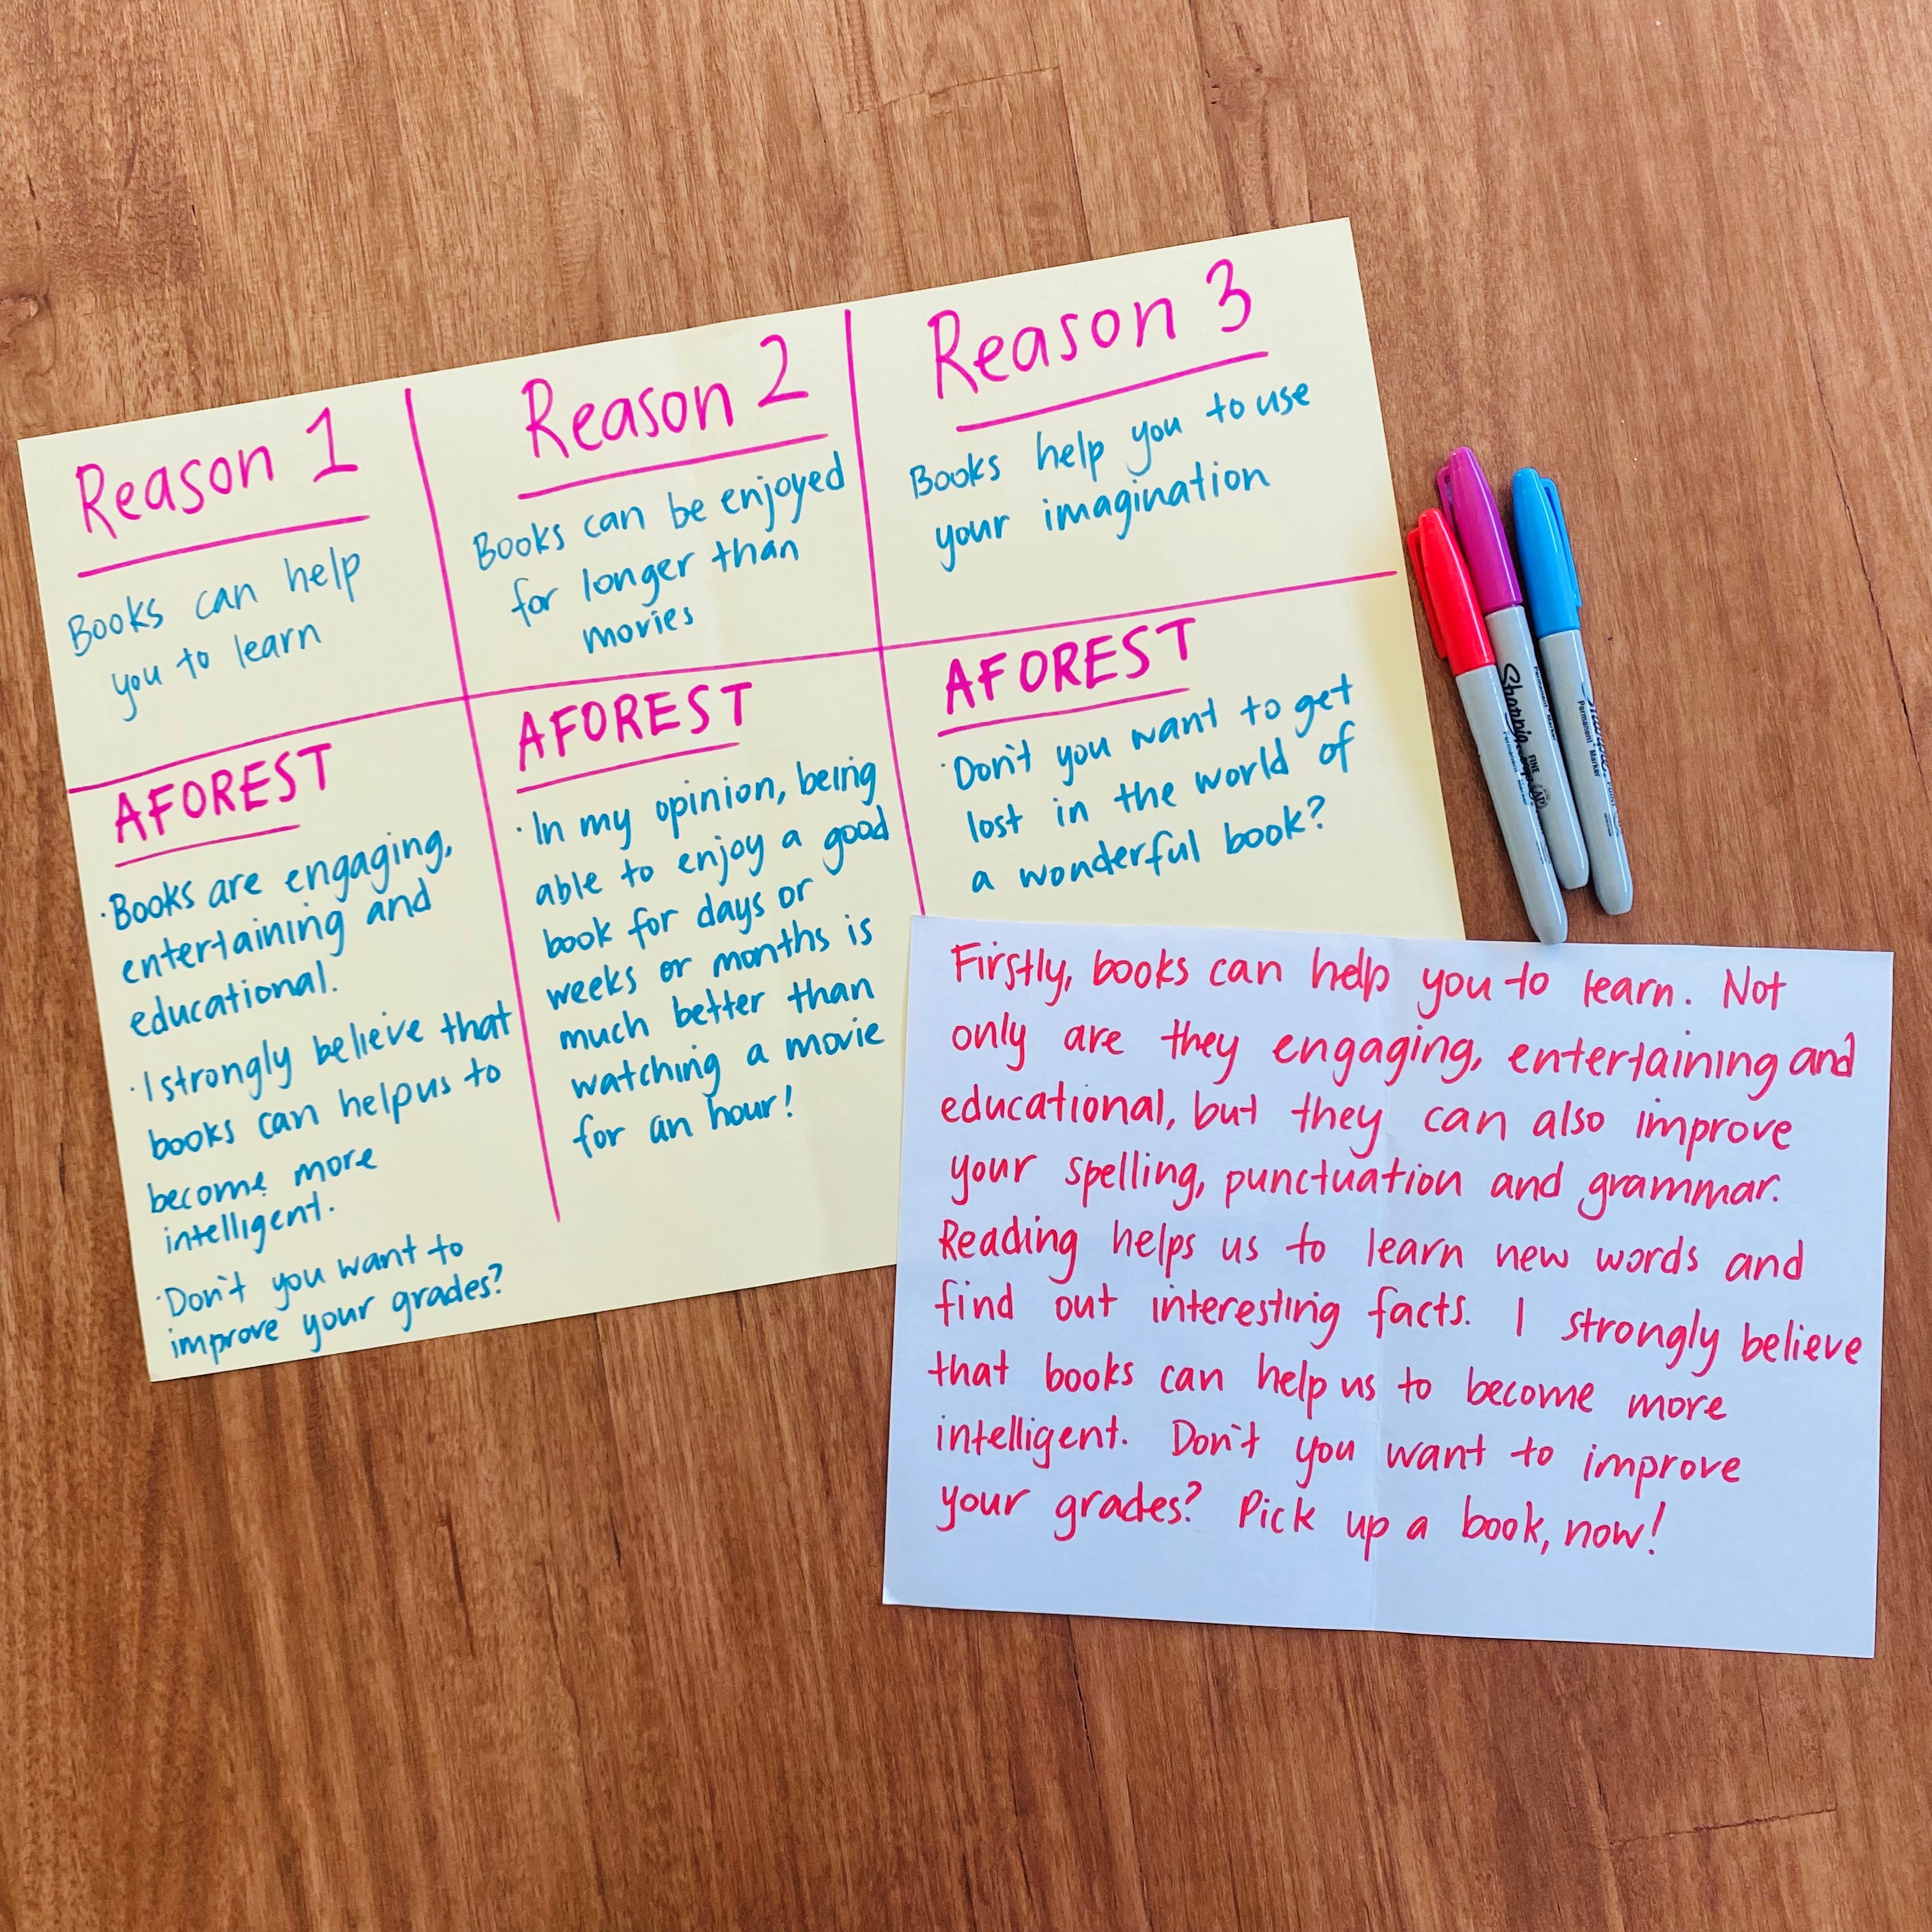 Reason 1
Books can help
you to learn
AFOREST
·Books are engaging,
entertaining and
educational.
·I strongly believe that
books can help us to
become more
intelligent.
·Don't you want to
improve your grades?
Reason 2
Books can be enjoyed
for longer than
movies
AFOREST
·In my opinion, being
able to enjoy a good
book for days or
weeks or months is
much better than
watching a movie
for an hour!
Reason 3
Books help you to use
your imagination
AFOREST
·Don't you want to get
lost in the world of
a wonderful book?
Firstly, books can help you to learn. Not
only are they engaging, entertaining and
educational, but they can also improve
your spelling, punctuation and grammar.
Reading helps us to learn new words and
find out interesting facts. I strongly believe
that books can help us to become more
intelligent. Don't you want to improve
your grades? Pick up a book, now!
Sharpie
FINE
Permanent Marker